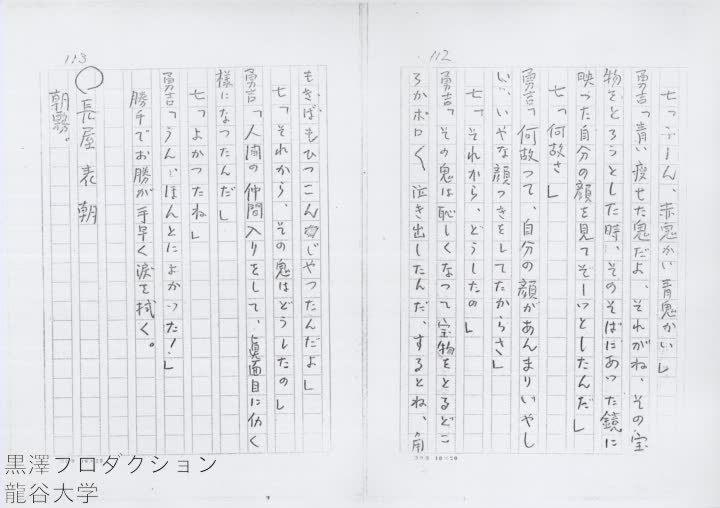 112
七「ふーん、赤鬼かい青鬼かい」
勇吉「青い痩せた鬼だよ、それがね、その宝
物をとろうとした時、そのそばにあつた鏡に
映つた自分の顔を見てぞーつとしたんだ」
七「何故さ」
勇吉「何故つて、自分の顔があんまりいやし
い、いやな顔つきをしてたからさ」
七「それから、どうしたの」
勇吉「その鬼は恥しくなつて宝物をとるどこ
ろかポロ〱泣き出したんだ、するとね、角
113
もきばもひつこんじやつたんだよ」
七「それから、その鬼はどうしたの」
勇吉「人間の仲間入りをして、真面目に仂く
様になつたんだ」
七「よかつたね」
勇吉「うん、ほんとによかつた！」
勝手でお勝が手早く涙を拭く。
○長屋表 朝
朝霧。
黒澤プロダクション
龍谷大学